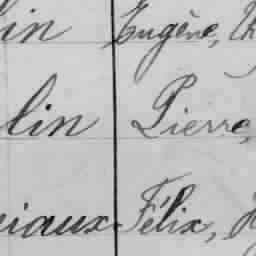 lin Eugène,
lin Pierre,
iaux Félix,